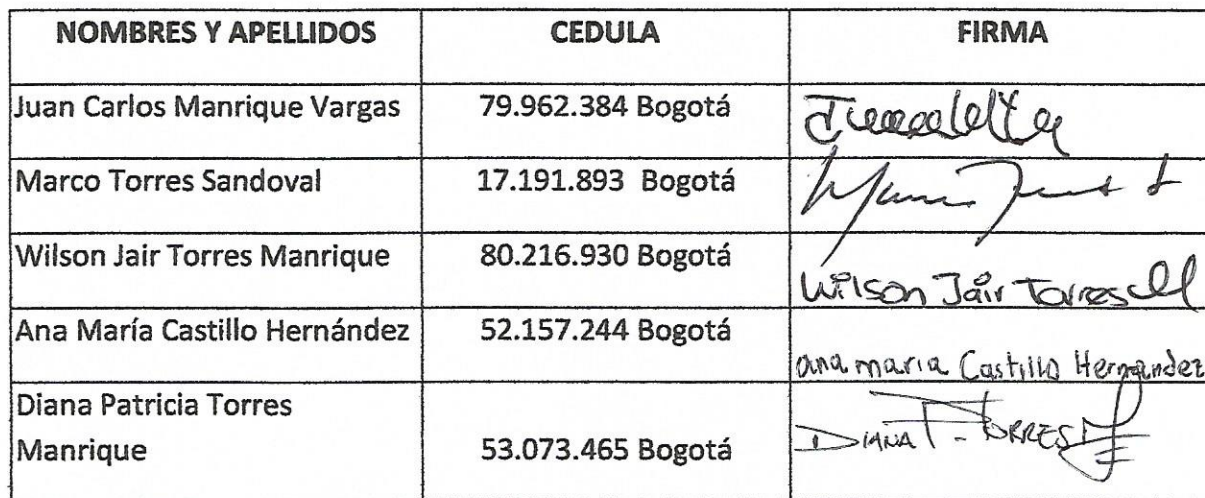 NOMBRES Y APELLIDOS CEDULA FIRMA
Juan Carlos Manrique Vargas 79.962.384 Bogotá
Marco Torres Sandoval 17.191.893 Bogotá
Wilson Jair Torres Manrique 80.216.930 Bogotá
Wilson Jair Torres M
Ana María Castillo Hernández 52.157.244 Bogotá
ana maria Castillo Hernandez
Diana Patricia Torres
Manrique 53.073.465 Bogotá DIANA P. TORRES M